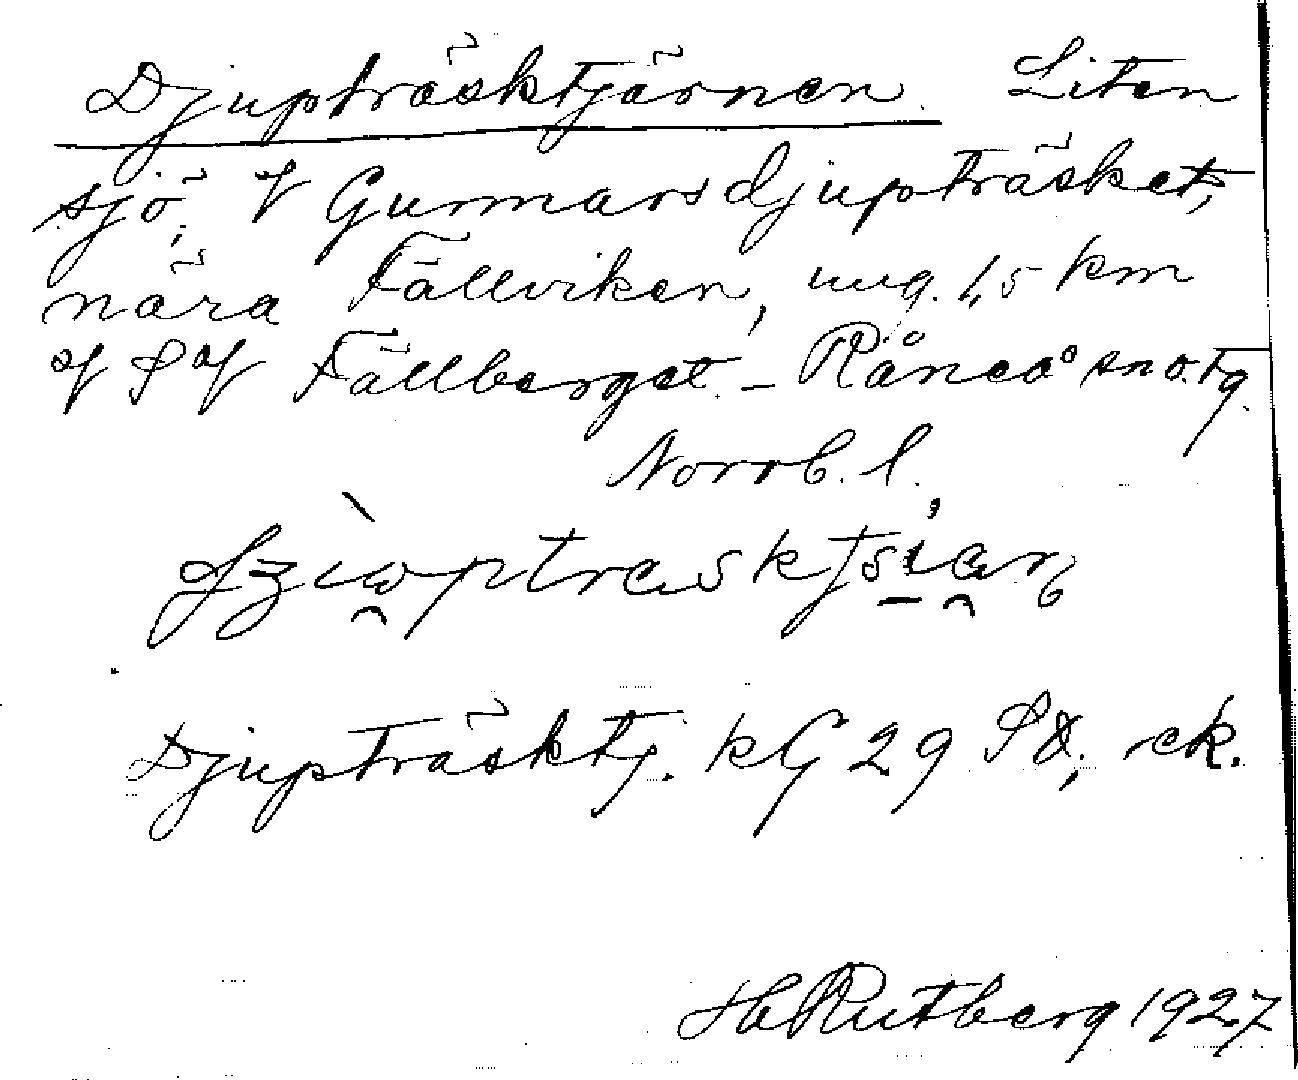 Djupträsktjärnen. Liten
sjö, V Gunnarsdjupträsket,
nära Fällviken, ung. 1,5 km
V S V Fällberget. – Råneå sn o. tg.
Norrb. l.
Djupträsktj. kG 29 SO, ek.
H Rutberg 1927